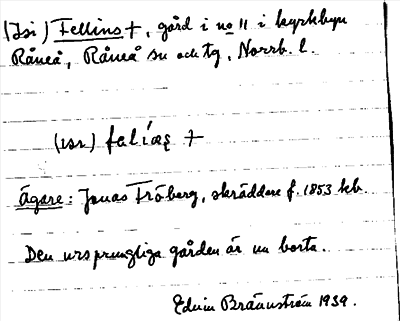 (Isi) Fellins +, gård i no 11 i kyrkbyn
Råneå, Råneå sn och tg, Norrb. l.
falías +
Ägare: Jonas Fröberg, skräddare f. 1853 kb.
Den ursprungliga gården är nu borta.
Edvin Brännström 1939.